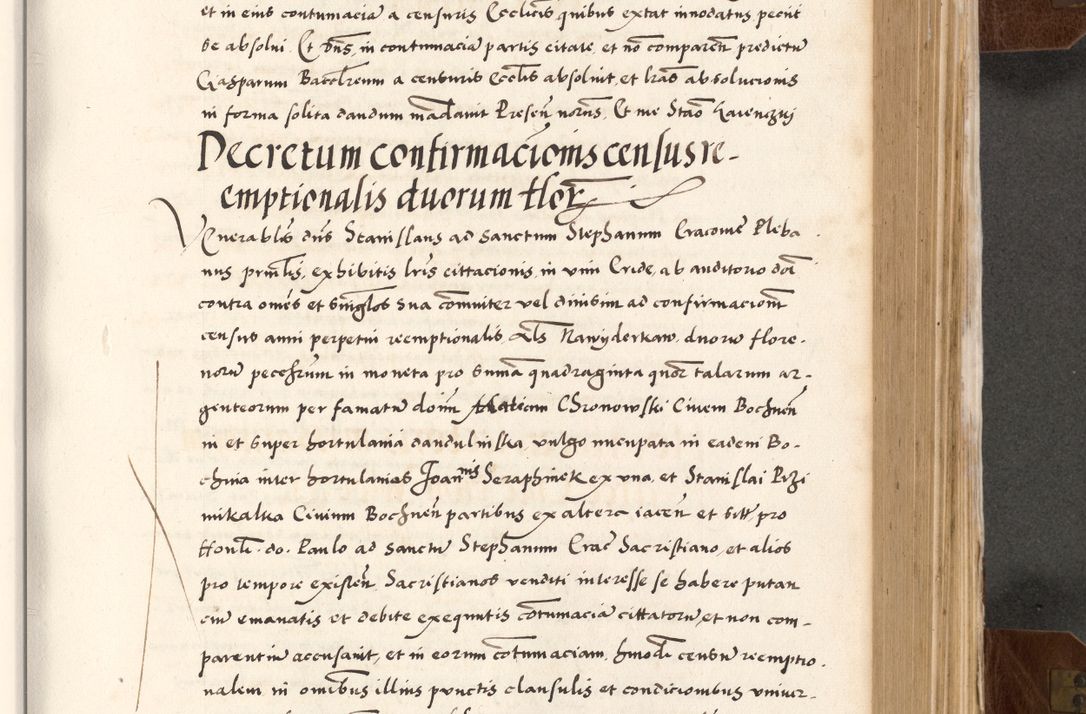 et in eius contumaciā a censuris Ecclicis quibus extat innodatus peciit
se absolvi. Et dns, in contumaciā partis citate, et nō comparen̄ predictū
Gasparum Baccl̄reum a censuris Eccl̄is absoluit, et l̄ras absolucionis
in forma solita dandum mādavit Presen̄ nor̄ns. Et me Stāo
Decretum confirmacionis census re-
emptionalis duorum flor.
Venerabl̄is dn̄s Stanislaus ad sanctum Stephanum Cracovie Pleba
nus prn̄lis, exhibitis l̄ris cittacionis, in vim Cride, ab auditorio dn̄i
contra om̄es et singl̄os sua com̄uniter vel divisim ad confirmacionē
census anni perpetui reemptionalis, al̄s Nawyderkaw, duorū flore-
norū pecc̄rium in moneta pro sum̄a quadraginta quor̄ talarum ar-
genteorum per famatū doīm Chronowski Civem Bochnen̄
in et super hortulania dandulinska vulgo nucupata in eadem Bo-
chnia inter hortulanias Joannis Seraphinek ex una, et Stanislai Przi
mikalka Civium Bochnen̄ partibus ex altera iacen̄ et sitt̄, pro
Honl̄i. do. Paulo ad sanctū Stephanum Crac̄ Sacristiano, et alios
pro tempore existen̄ Sacristianos venditi interesse se habere putan
cm̄ emanatis et debite exequutis cōtumaciā cittatorū, et non com-
parentiū accusavit, et in eorum cōtumaciam hmōdi censu reemptio-
nalem in omībus illius punctis clausulis et condicionibus univer-